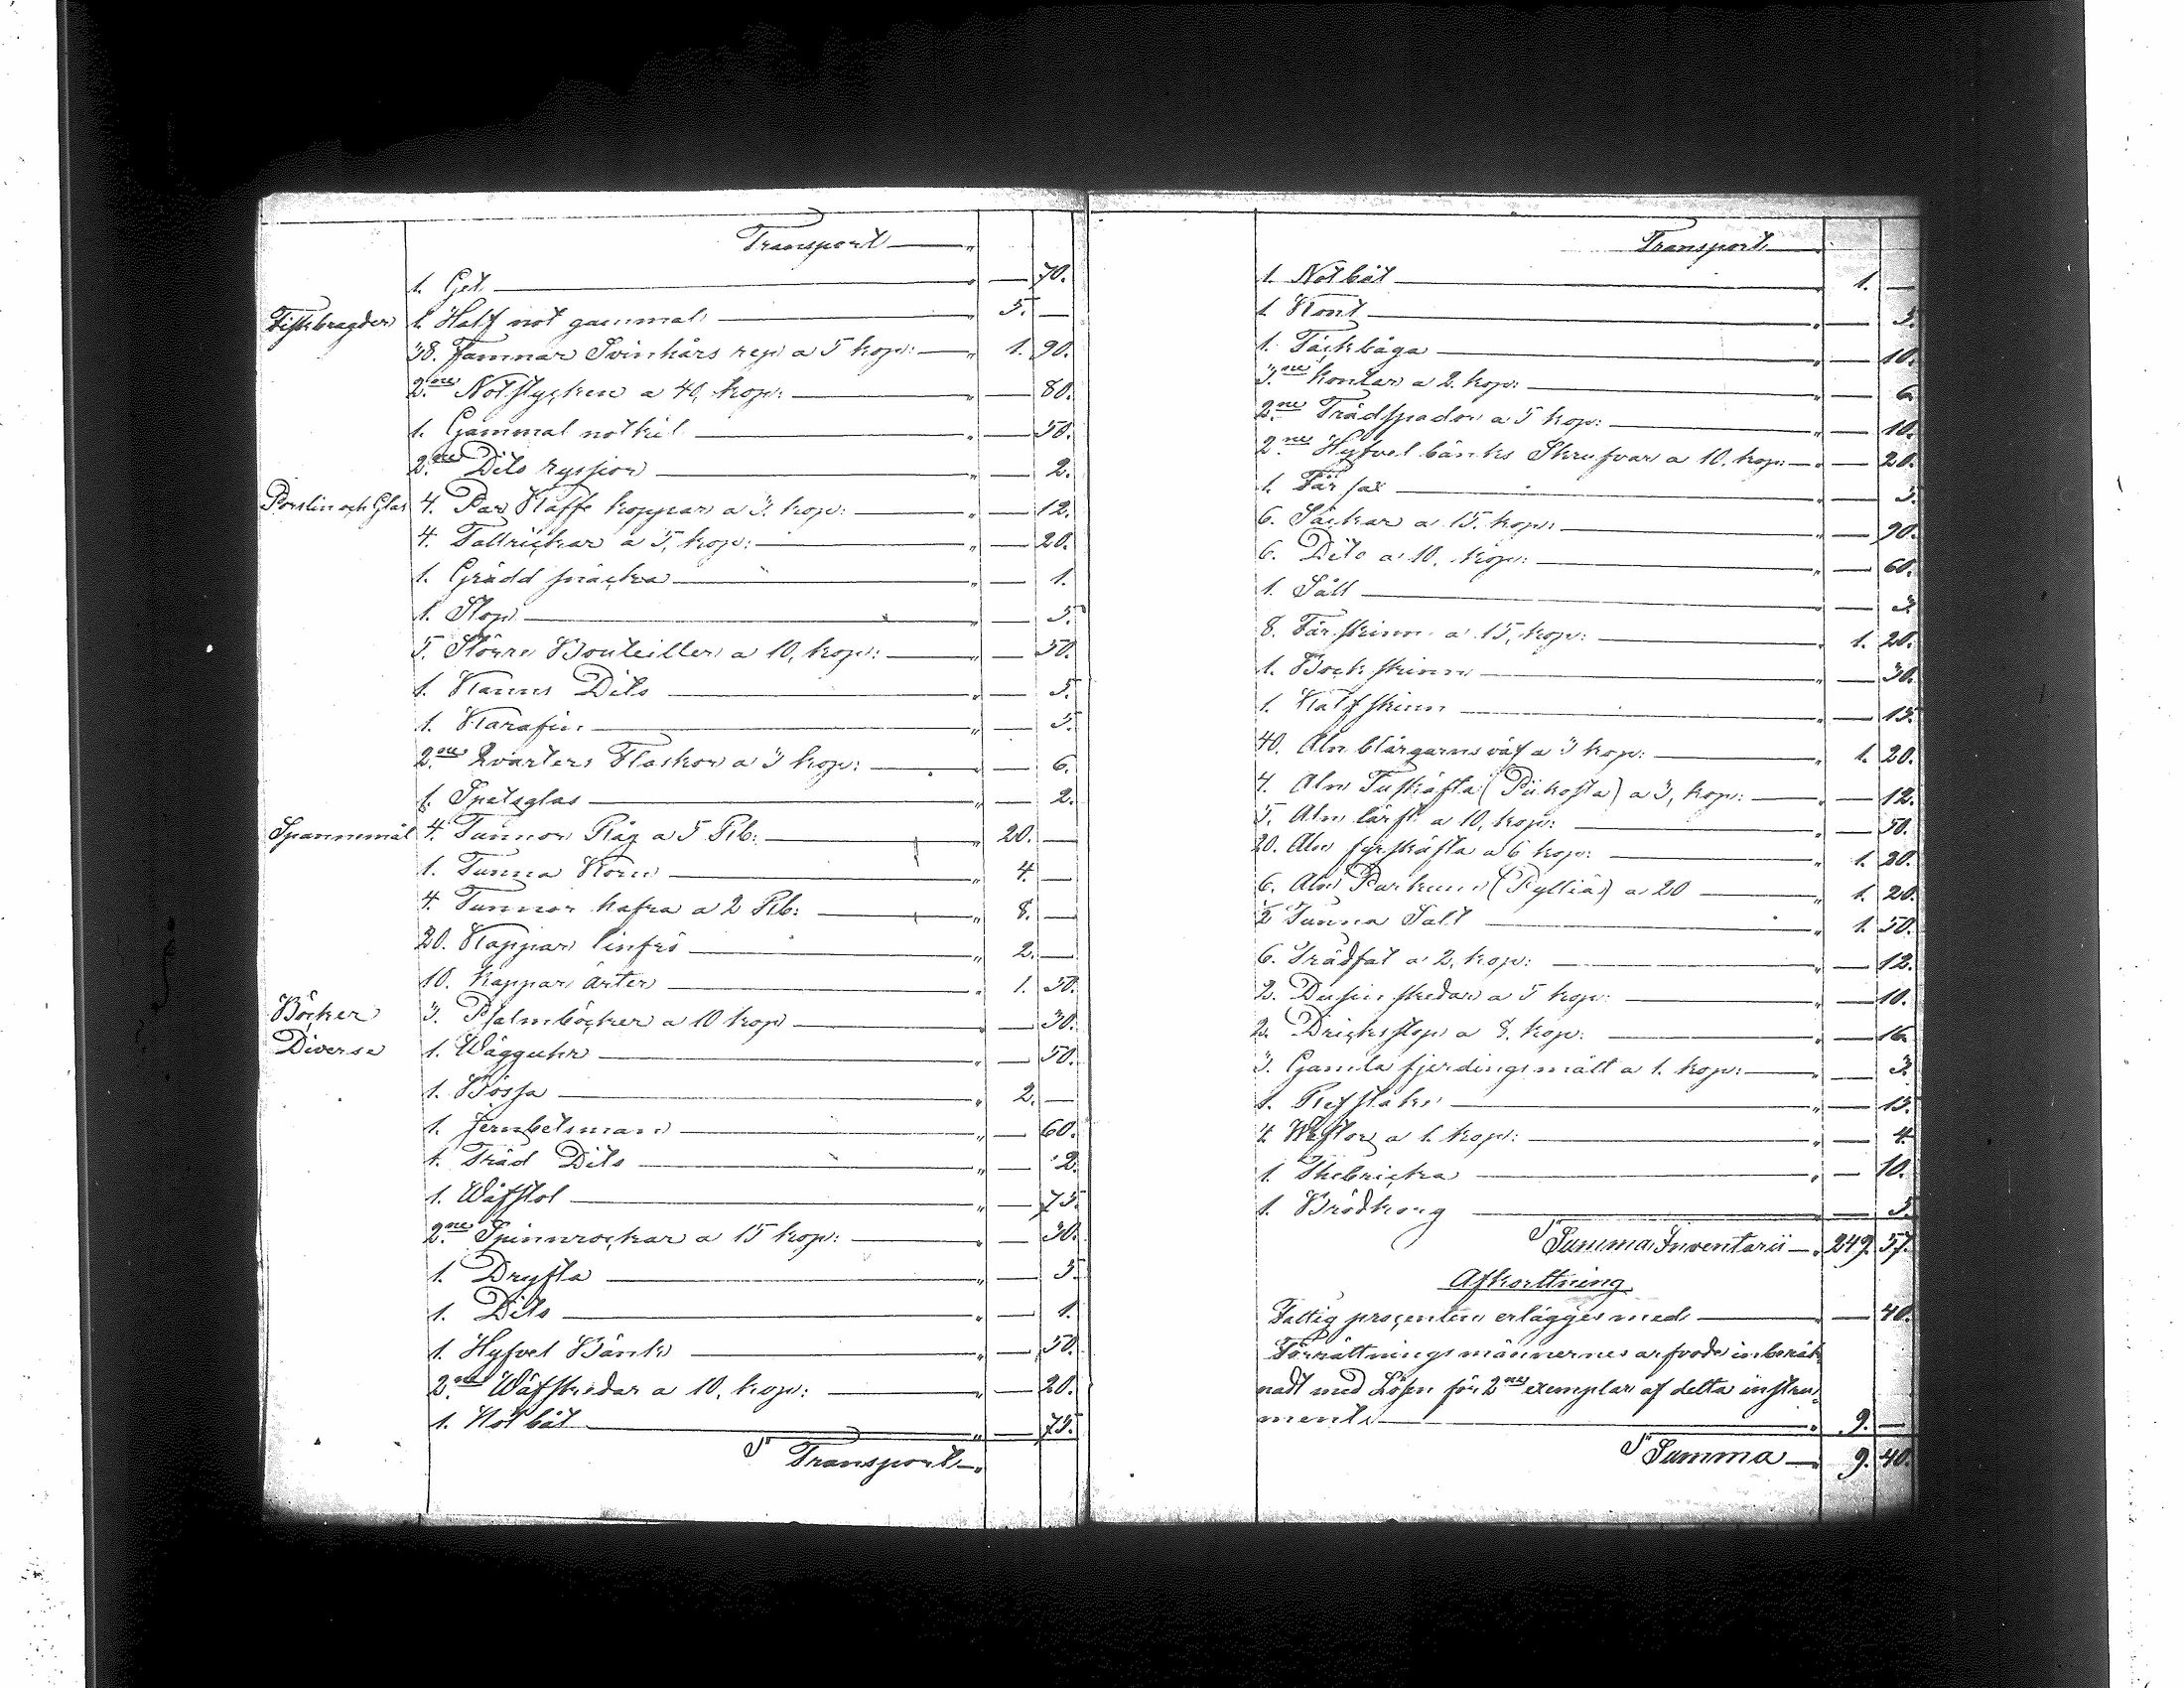 Transport — "
1. Get — " — 70.
Fiskbragder 1. Half not gammal — " 5. —
38. Famnar Svinhårs rep a 5 kop: — " 1. 90.
2.ne Notstycken a 40, kop: — " — 80.
1. Gammal notkil — " — 50.
2.ne Dito ryssior — " — 2.
Porslin och Glas 4. Par Kaffe koppar a 3. kop: — " — 12.
4. Tallrickar a 5, kop: — " — 20.
1. Grädd snäcka — " — 1.
1. Stop — " — 5.
5. Större Bouteiller a 10, kop: — " — 50.
1. Kanns Dito — " — 5.
1. Karafin — " — 5.
2.ne Qvarters Flaskor a 3 kop: — " — 6.
1. Spetsglas — " — 2.
Spannmål 4. Tunnor Råg a 5 Rb: — " 20. —
1. Tunna Korn — " 4. —
4. Tunnor hafra a 2 Rb: — " 8. —
20. Kappar linfrö — " 2. —
10. Kappar ärter — " 1. 50.
Böcker 3. Psalmböcker a 10 kop — " — 30.
Diverse 1. Wägguhr — " — 50.
1. Bössa — " 2. —
1. Jernbetsman — " — 60.
1. Träd Dito — " — 2.
1. Wäfstol — " — 75.
2.ne Spinnrockar a 15 kop: — " — 30.
1. Dryfta — " — 5.
1. Dito — " — 1.
1. Hyfvel Bänk — " — 50.
2.ne Wäfskedar a 10, kop: — " — 20.
1. Not båt — " — 75.
Sr Transport — "
Transport — "
1. Notbåt — " 1. —
1. Kont — " — 5.
1. Täckbåga — " — 10.
3.ne kontar a 2. kop: — " — 6.
2.ne Trädspador a 5 kop: — " — 10.
2.ne Hyfvel bänks Skrufvar a 10. kop: — " — 20.
1. Får sax — " — 5.
6. Säckar a 15. kop: — " — 90.
6. Dito a 10. kop: — " — 60.
1. Såll — " — 3.
8. Fårskinn a 15, kop: — " 1. 20.
1. Bockskinn — " — 30.
1. Kalfskinn — " — 15.
40. Aln blårgarns väf a 3 kop: — " 1. 20.
4. Aln Tuskäfta ( ) a 3, kop: — " — 12.
5. Aln lärft a 10, kop: — " — 50.
20. Aln fyrskäfta a 6 kop: — " 1. 20.
6. Aln Parkum ( ) a 20 — " 1. 20.
½ Tunna Salt — " 1. 50.
6. Trädfat a 2, kop: — " — 12.
2. Dusin skedar a 5 kop: — " — 10.
2. Dricksstop a 8. kop: — " — 16.
3. Gamla fjerdings mått a 1. kop: — " — 3.
1. — " — 15.
4. a 1. kop: — " — 4.
1. Thebricka — " — 10.
1. Brödkorg — " — 5.
Sr Summa Inventarii — " 249. 57.
Afkortning
Fattig procenten erlägges med — " — 40.
Förrättningsmännernes arfvode inberäk
nadt med Lösen för 2ne exemplar af detta instru„
ment — " 9. —
Sr Summa — " 9. 40.